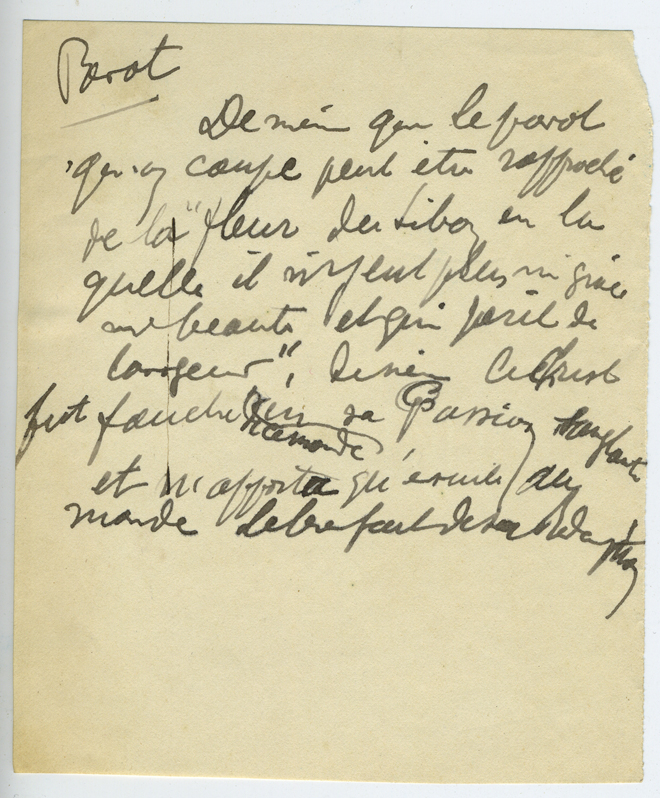 Pavot
De même que le pavot
qu'on coupe peut être rapproché
de la "fleur du Liban en la
quelle il n'y eut plus ni grâce
ni beauté et qui périt de
langueur", de même le Christ
fut fauché en sa Passion sanglante
et n'apporta qu'ensuite au
monde le bienfait de sa Rédemption